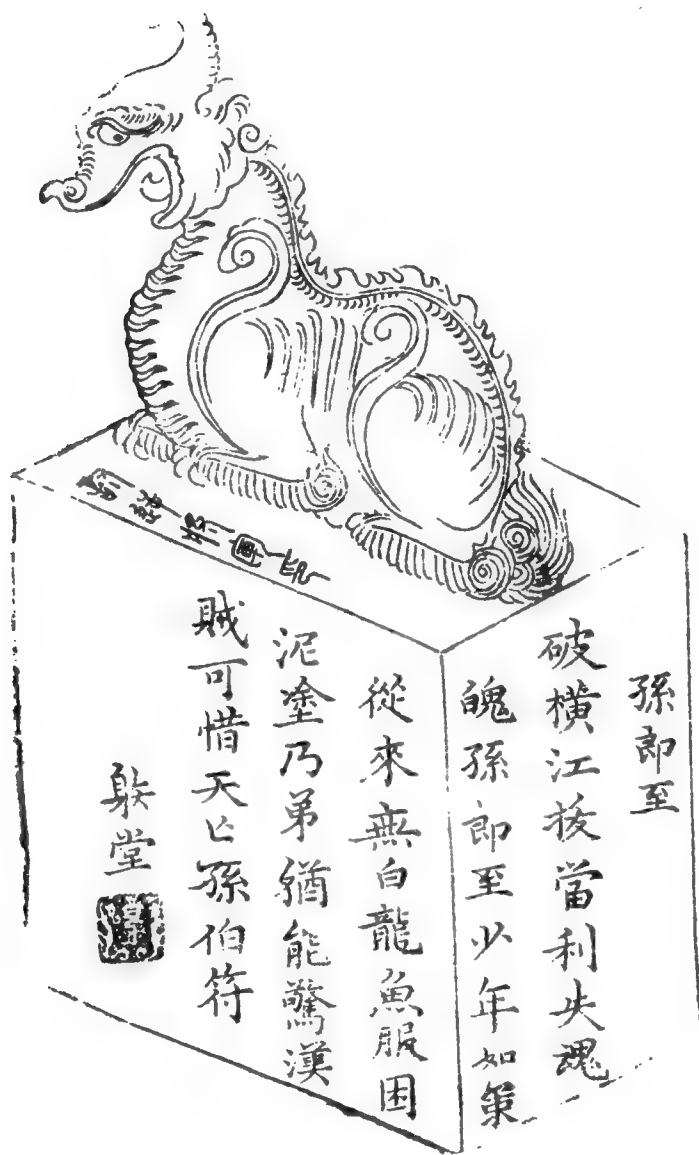 孫郎至
破橫江拔當利失魂
魄孫郎至少年如策
從來無白龍魚服困
泥塗乃弟猶能驚漢
賊可惜天亡孫伯符
堂
將軍印